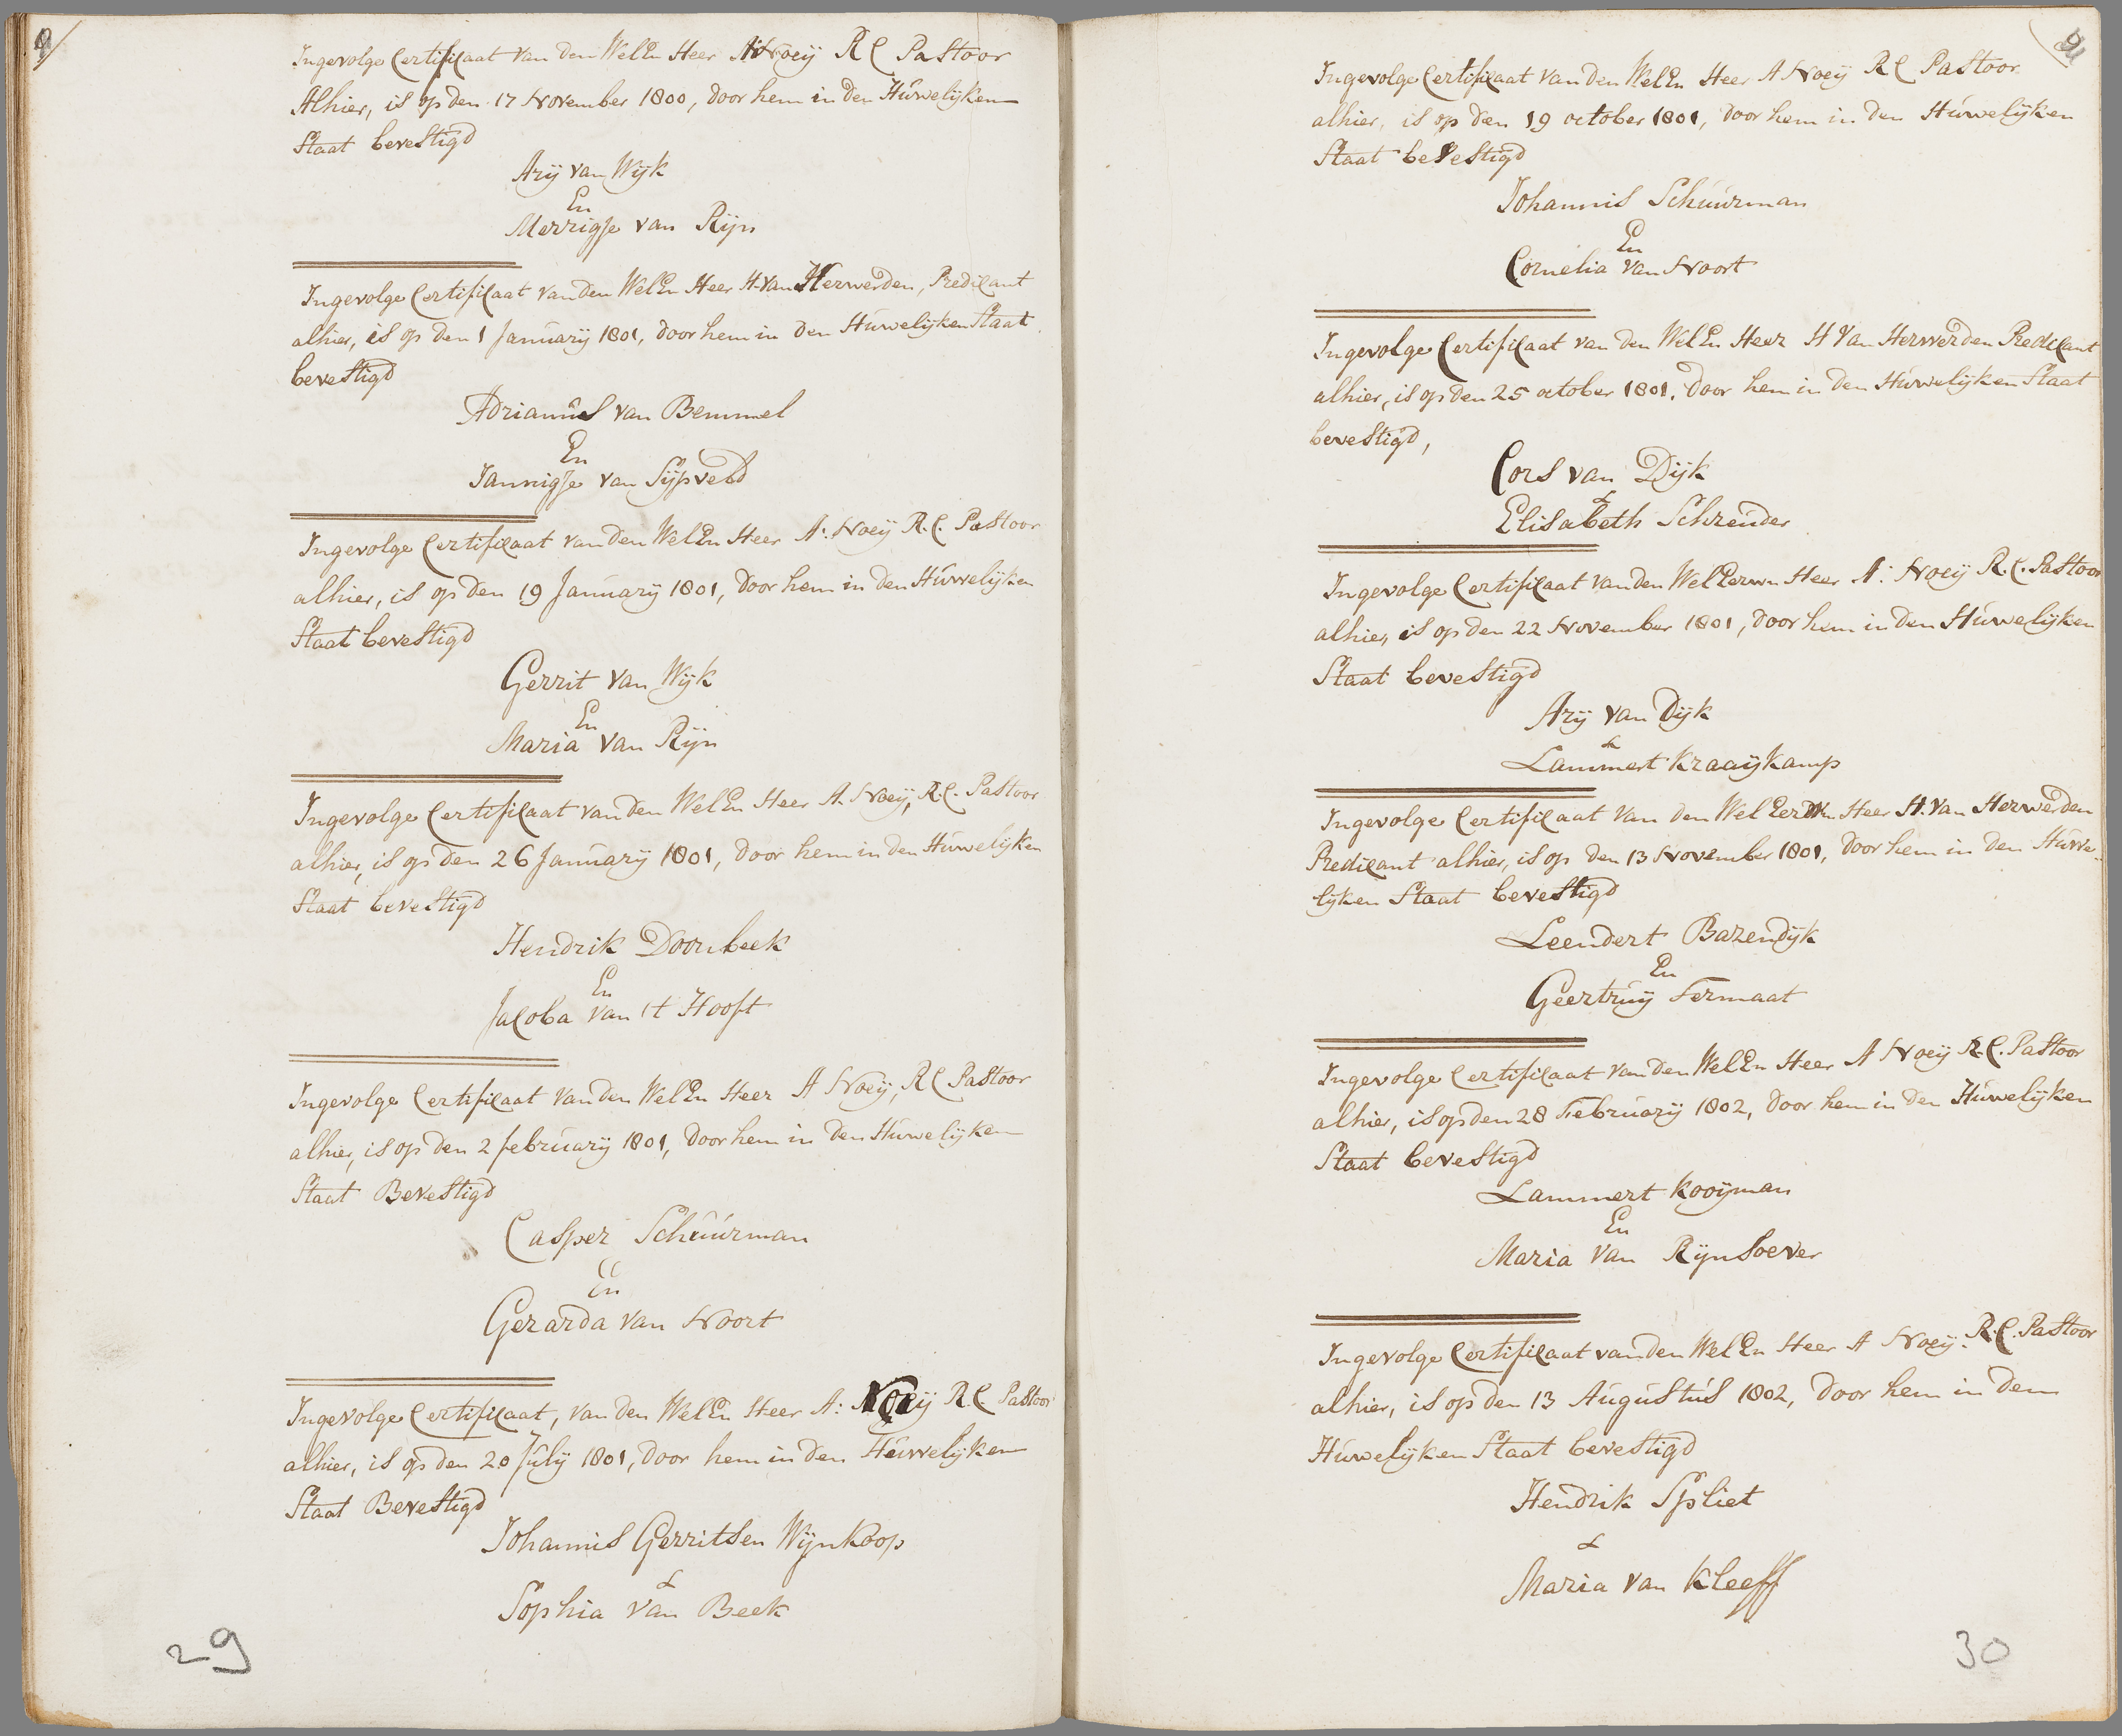 9/
Ingevolge Certificaat van den WelEn Heer A Noeij R C Pastoor
Alhier, is op den 17 November 1800, door hem in den Húwelijken
Staat bevestigd
Arij van Wijk
En
Merrigje van Rijn
Ingevolge Certificaat van den WelEn Heer H. van Herwerden, Predicant
alhier, is op den 1 Janúarij 1801, door hem in den Húwelijken Staat
bevestigd
Adrianús van Bemmel
En
Jannigje van Sijpveld
Ingevolge Certificaat van den WelEn Heer A: Noeij R.C. Pastoor
alhier, is op den 19 Janúarij 1801, door hem in den Húwelijken
Staat bevestigd
Gerrit van Wijk
En
Maria van Rijn
Ingevolge Certificaat van den WelEn Heer A. Noeij, R.C. Pastoor
alhier, is op den 26 Janúarij 1801, door hem in den Húwelijken
Staat bevestigd
Hendrik Doornbeek
En
Jacoba van 't Hooft
Ingevolge Certificaat van den WelEn Heer A Noeij, R C Pastoor
alhier, is op den 2 febrúarij 1801, door hem in den Húwelijken
Staat Bevestigd
Casper Schúúrman
En
Gerarda van Noort
Ingevolge Certificaat, van den WelEn Heer A: Noeij R.C. Pastoor
alhier, is op den 20 Júlij 1801, door hem in den Húwelijken
Staat Bevestigd
Johannis Gerritsen Wijnkoop
&
Sophia van Beek
29
Ingevolge Certificaat van den WelEn Heer A Noeij R C Pastoor
alhier, is op den 19 october 1801, door hem in den Húwelijken
Staat bevestigd
Johannis Schúúrman
En
Cornelia van Noort
Ingevolge Certificaat van den WelEn Heer H Van Herwerden Predicant
alhier, is op den 25 october 1801, door hem in den Húwelijken Staat
bevestigd,
Cors van Dijk
&
Elisabeth Schreúder
Ingevolge Certificaat van den WelEerwn Heer A: Noeij R.C. Pastoor
alhier, is op den 22 November 1801, door hem in den Húwelijken
Staat bevestigd
Arij van Dijk
&
Lammert Kraaijkamp
Ingevolge Certificaat van den WelEerwn Heer H. Van Herwerden
Predicant alhier, is op den 13 November 1801, door hem in den Húwe-
lijken Staat bevestigd
Leendert Bazendijk
En
Geertrúij Fermaat
Ingevolge Certificaat van den WelEn Heer A Noeij R.C. Pastoor
alhier, is op den 28 Febrúarij 1802, door hem in den Húwelijken
Staat bevestigd
Lammert Kooijman
En
Maria van Rijnsoever
Ingevolge Certificaat van den WelEn Heer A Noeij. R.C. Pastoor
alhier, is op den 13 Aúgústús 1802, door hem in den
Húwelijken Staat bevestigd
Hendrik Spliet
&
Maria van Kleeff
30